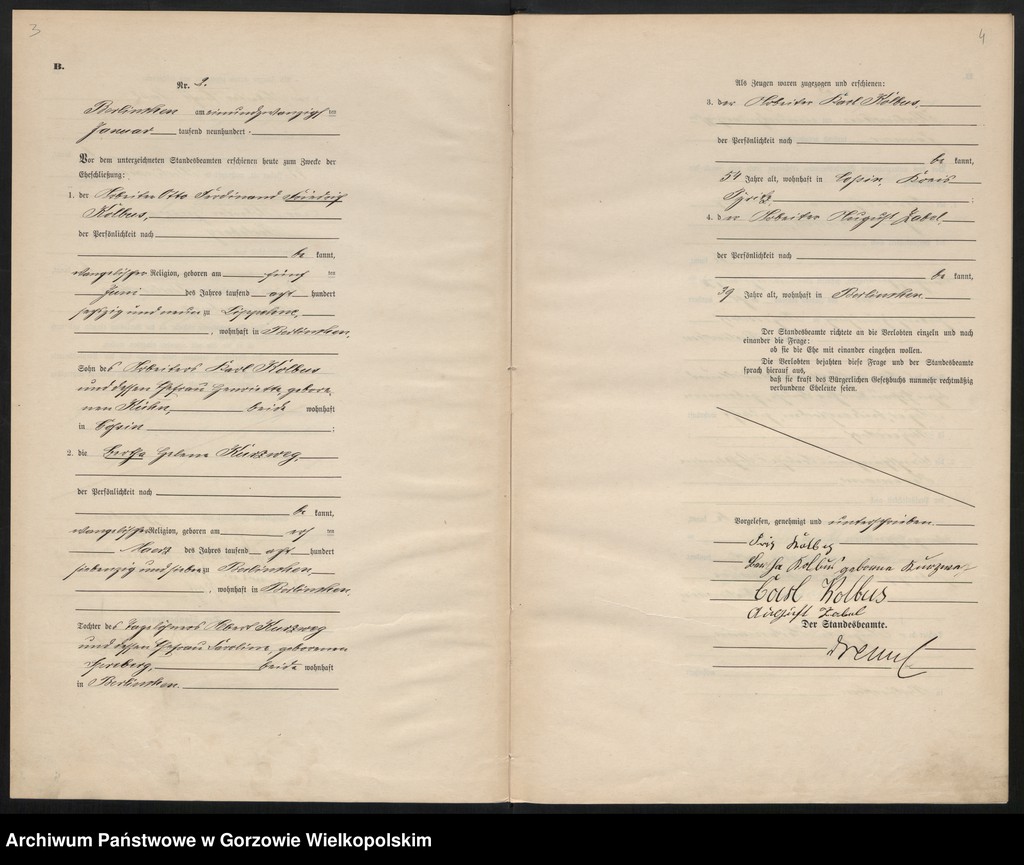 3
B.
Nr. 2.
Berlinchen am einundzwanzigsten
Januar tausend neunhundert -
Vor dem unterzeichneten Standesbeamten erschienen heute zum Zwecke der
Eheschließung:
1. der Arbeiter Otto Ferdinand Friedrich
Kolbus,
der Persönlichkeit nach
be kannt,
evangelischer Religion, geboren am fünf ten
Juni des Jahres tausend acht hundert
sechzig und neun zu Lippehne,
, wohnhaft in Berlinchen,
Sohn des Arbeiters Karl Kolbus
und dessen Ehefrau Henriette, gebore-
nen Kühn, beide wohnhaft
in Cossin ;
2. die Bertha Helene Kurzweg,
der Persönlichkeit nach
be kannt,
evangelischer Religion, geboren am ten
Maerz des Jahres tausend acht hundert
siebenzig und sieben zu Berlinchen,
, wohnhaft in Berlinchen,
Tochter des Tagelöhners Albert Kurzweg
und dessen Ehefrau Caroline, geborenen
beide wohnhaft
in Berlinchen.
4
Als Zeugen waren zugezogen und erschienen:
3. der Arbeiter Karl Kolbus
der Persönlichkeit nach
be kannt,
54 Jahre alt, wohnhaft in Cossin, Kreis
Pyritz ;
4. der Arbeiter August Zabel,
der Persönlichkeit nach
be kannt,
39 Jahre alt, wohnhaft in Berlinchen.
Der Standesbeamte richtete an die Verlobten einzeln und nach
einander die Frage:
ob sie die Ehe mit einander eingehen wollen.
Die Verlobten bejahten diese Frage und der Standesbeamte
sprach hierauf aus,
daß sie kraft des Bürgerlichen Gesetzbuchs nunmehr rechtmäßig
verbundene Eheleute seien.
Vorgelesen, genehmigt und unterschrieben
Friz Kolbus
Bertha Kolbus geborene Kurzweg
Carl Kolbus
August Zabel
Der Standesbeamte.
Archiwum Państwowe w Gorzowie Wielkopolskim